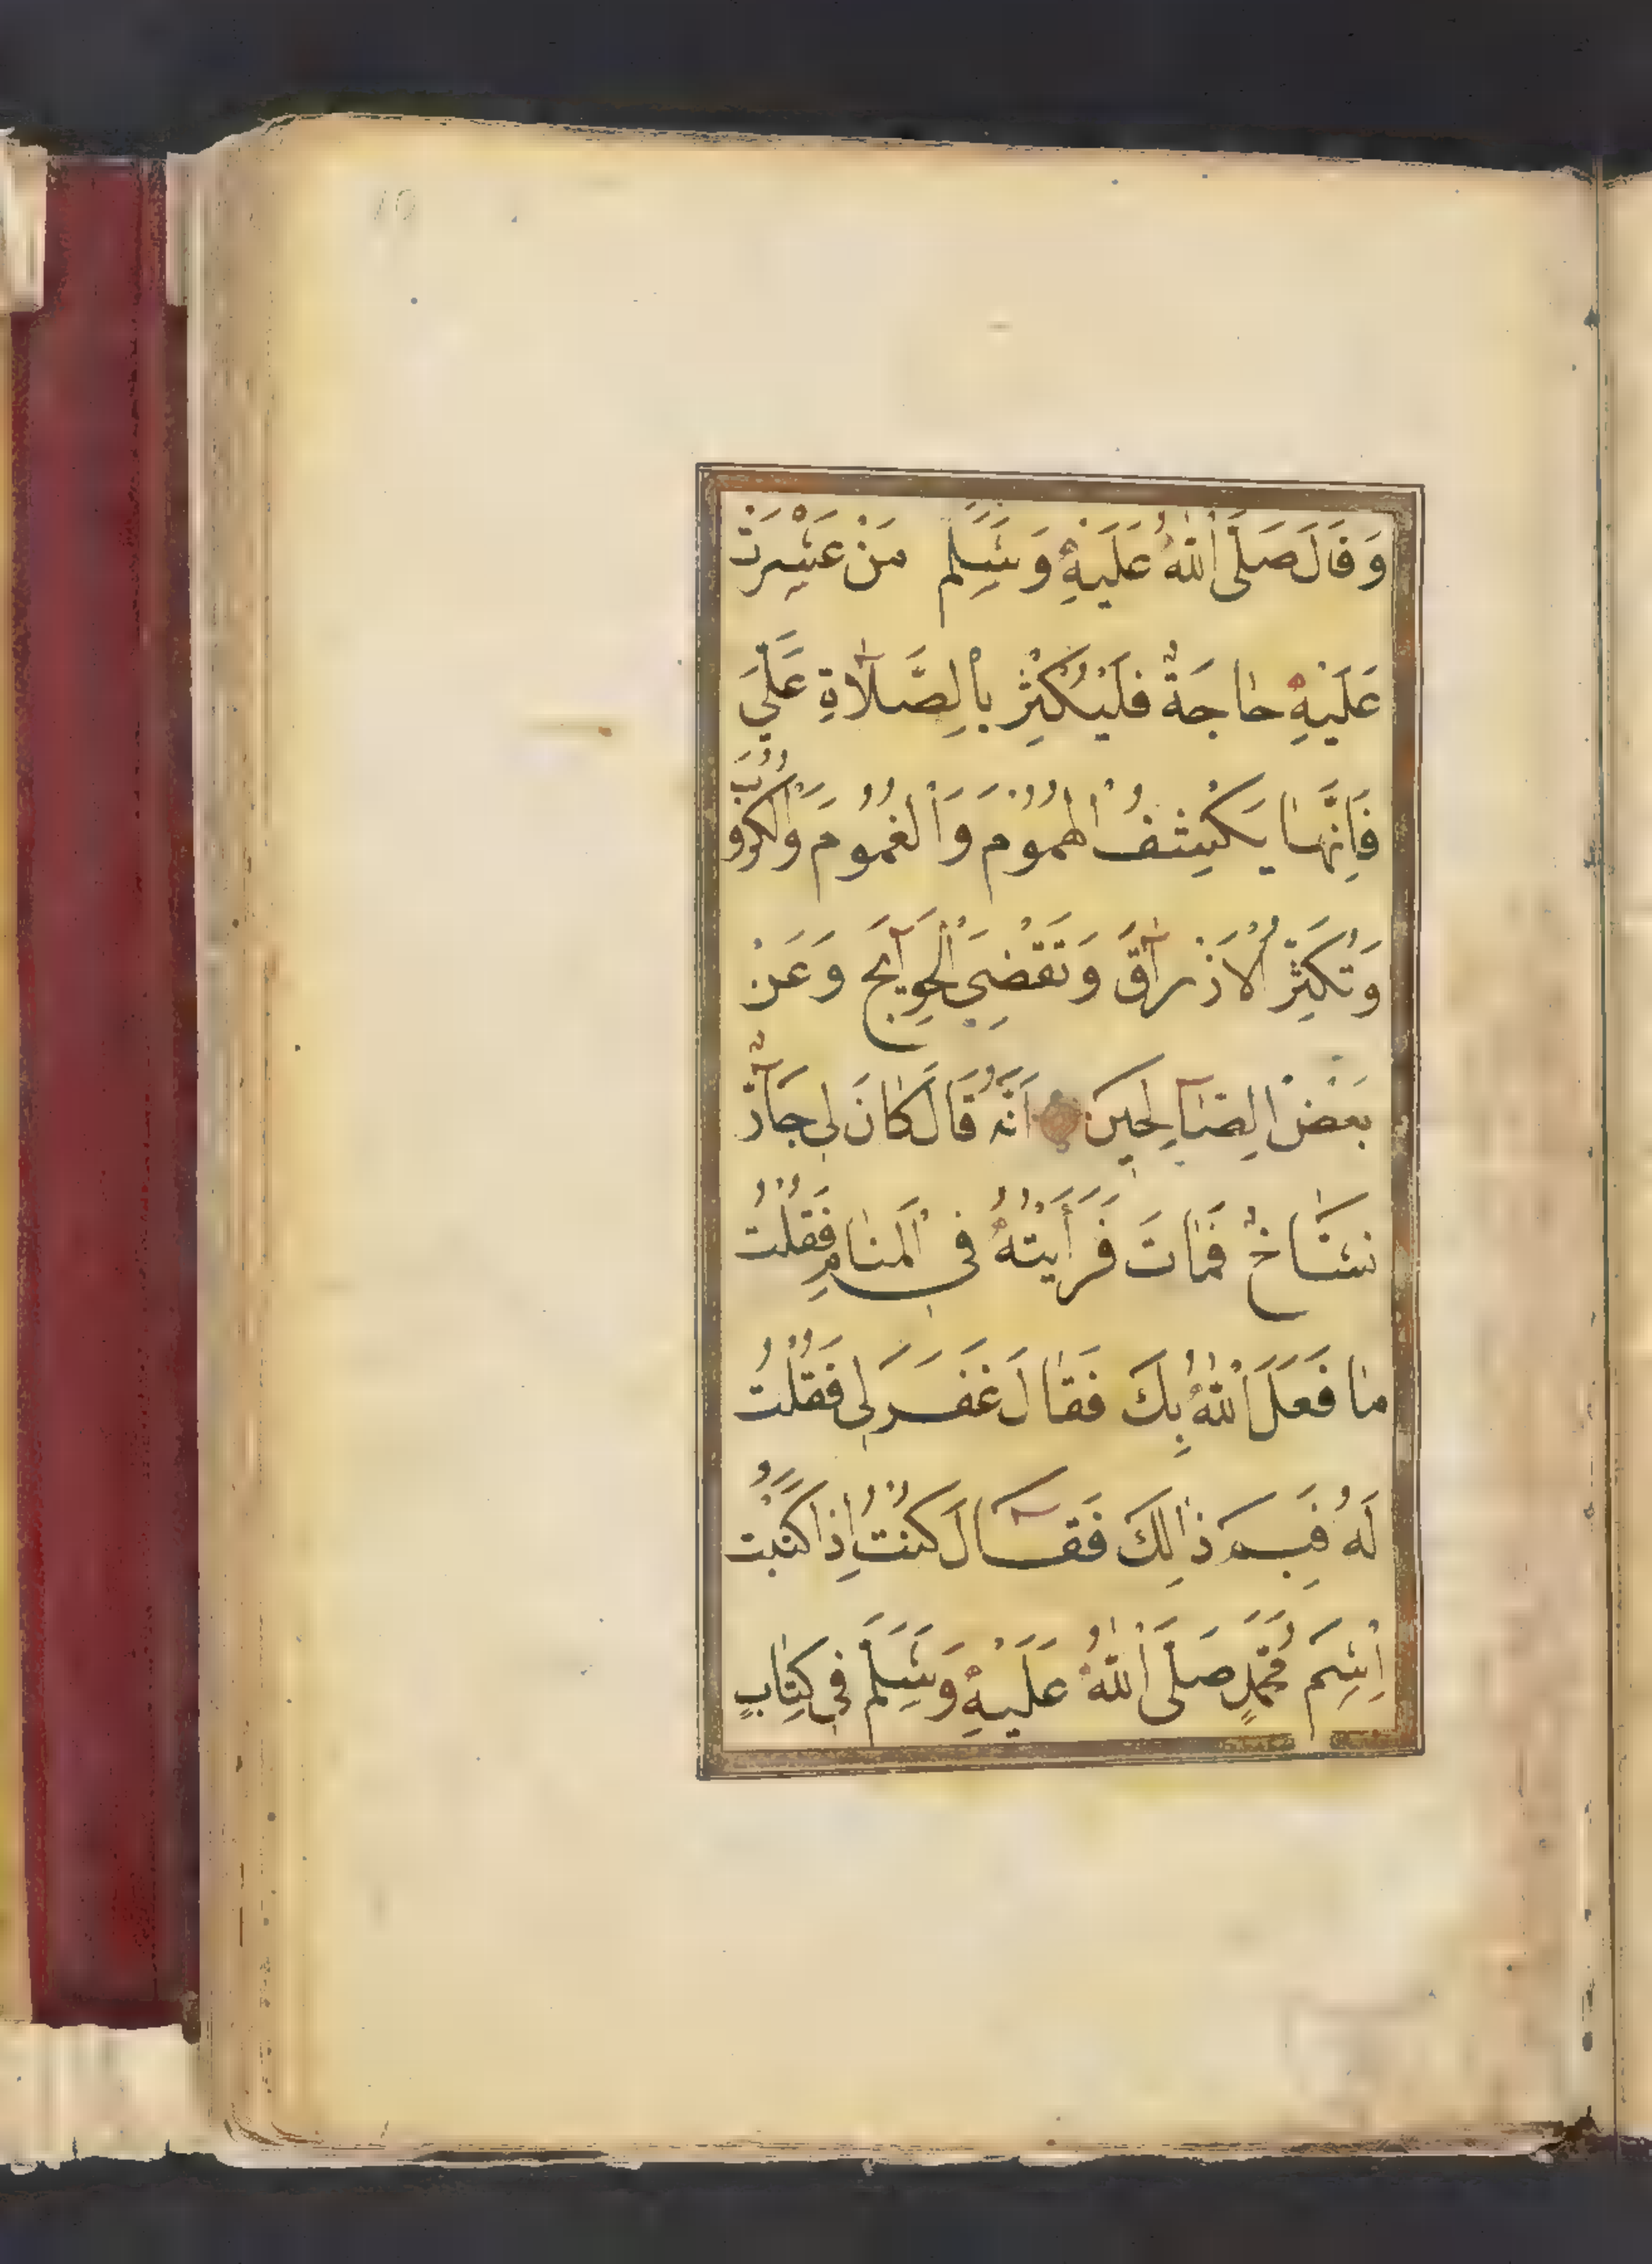 وَقَالَ صَلَّى اللّٰهُ عَلَيْهِ وَسَلَّمَ مَنْ عَسُرَتْ
عَلَيْهِ حَاجَةٌ فَلْيُكْثِرْ بِالصَّلَاةِ عَلَيَّ
فَاِنَّهَا يَكْشِفُ الْهُمُومَ وَالْغُمُومَ وَالْكُرُوبَ
وَتُكْثِرُ الْاَرْزَاقَ وَتَقْضِيَ الْحَوَآيِجَ وَعَنْ
بَعْضِ الصَّالِحِينَ اَنَّهُ قَالَ كَانَ لِي جَارٌ
نَسَّاخٌ فَمَاتَ فَرَأَيْتُهُ فِي الْمَنَامِ فَقُلْتُ
مَا فَعَلَ اللّٰهُ بِكَ فَقَالَ غَفَرَ لِي فَقُلْتُ
لَهُ فَبِمَ ذَالِكَ فَقَالَ كُنْتُ اِذَا كَتَبْتُ
اِسْمَ مُحَمَّدٍ صَلَّى اللّٰهُ عَلَيْهِ وَسَلَّمَ فِي كِتَابٍ